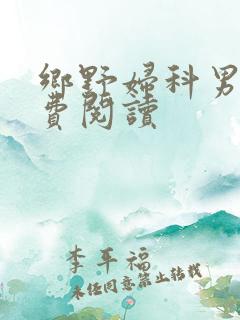 鄉野婦科男
費閱讀
李平福
未经同意禁止转载